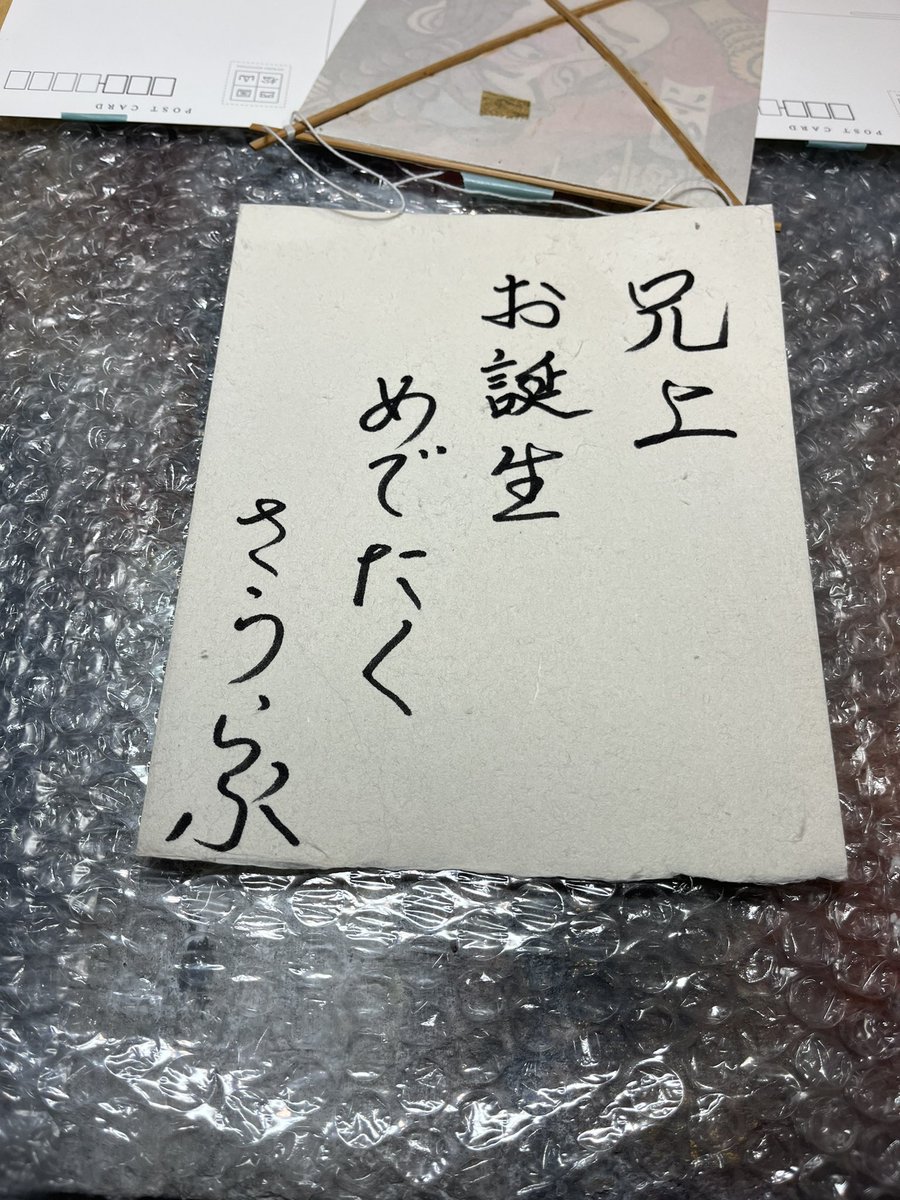 兄上
お誕生
めでたく
さうらふ
POST CARD
POST CARD